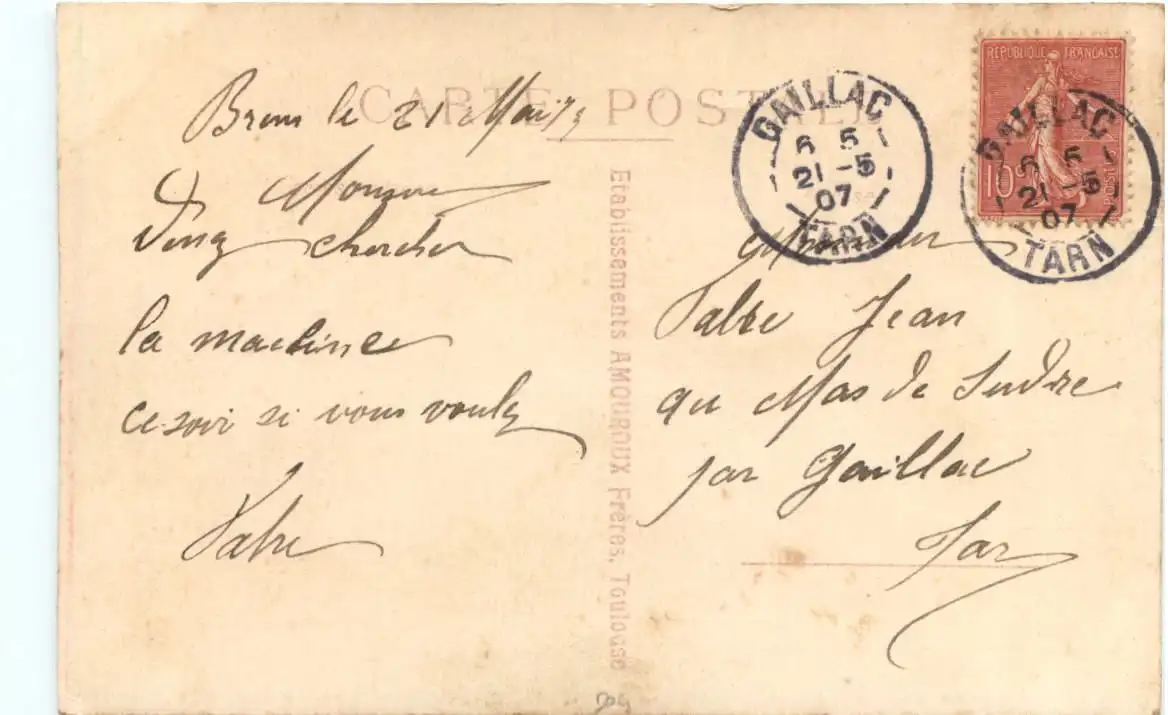 CARTE POSTALE
Brens le 21 Mai
Monsieur
Venez chercher
la machine
ce soir si vous voulez
Valre
Etablissements AMOUROUX Frères, Toulouse
REPUBLIQUE FRANÇAISE
10c
POSTES
GAILLAC
6 5
21 -5
07
TARN
GAILLAC
6 5
21 -5
07
TARN
Monsieur
Jean
au Mas de
par Gaillac
Tarn